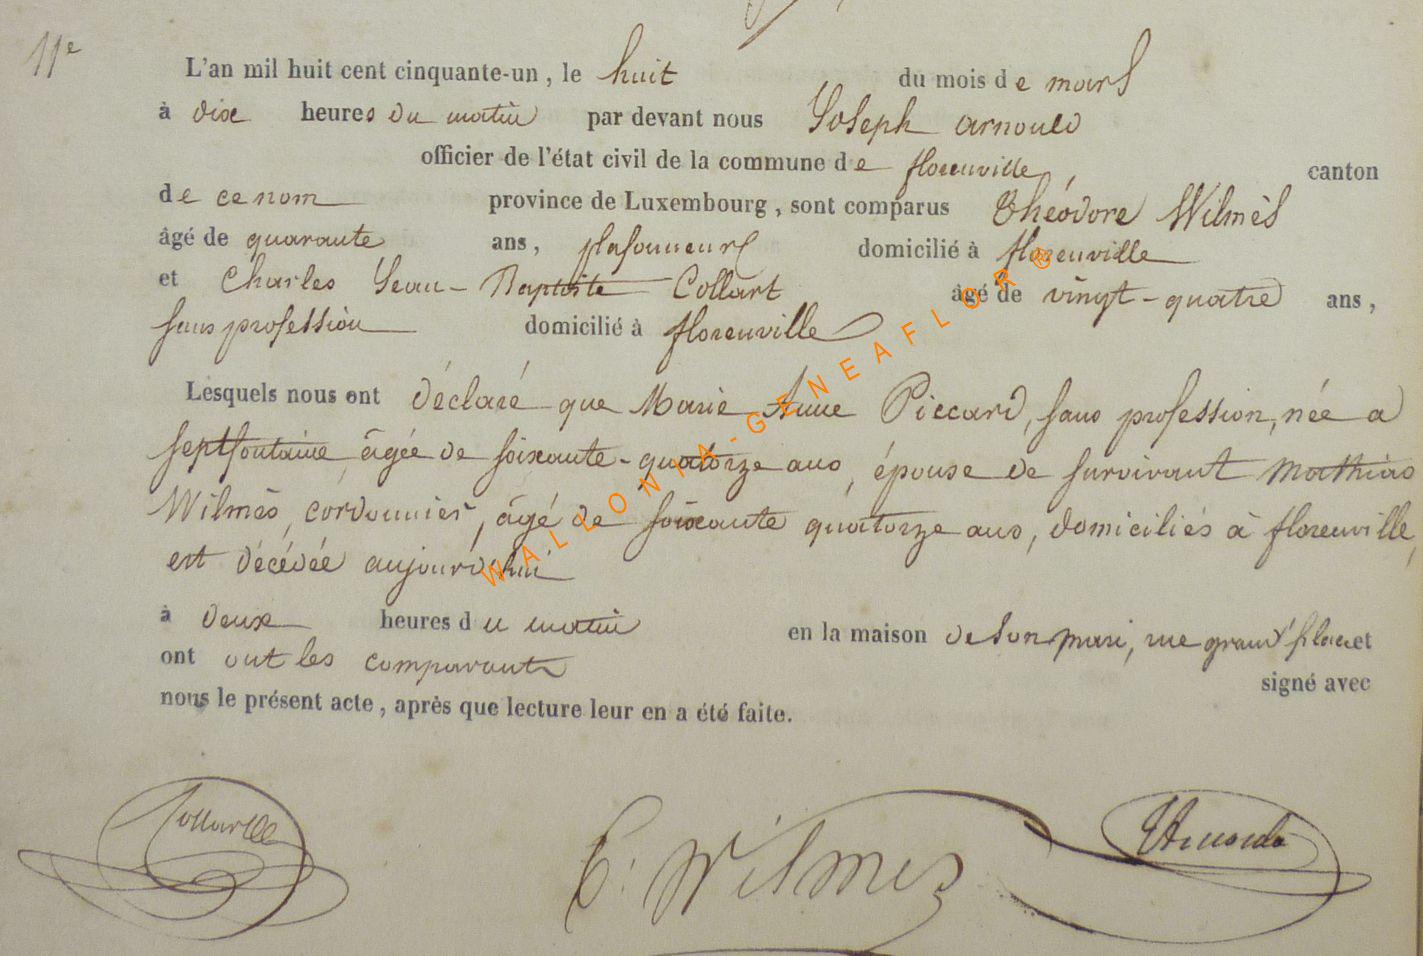 11e
L'an mil huit cent cinquante-un, le huit du mois de mars
à dix heures du matin par devant nous Joseph arnould
officier de l'état civil de la commune de florenville, canton
de ce nom province de Luxembourg, sont comparus Théodore Wilmès
âgé de quarante ans, plafonneur domicilié à florenville
et Charles Jean-Baptiste Collart âgé de vingt-quatre ans,
sans profession domicilié à florenville
Lesquels nous ont déclaré que Marie Anne Piccard, sans profession, née a
septfontaine, âgée de soixante-quatorze ans, épouse de survivant Mathias
Wilmès, cordonnier, âgé de soixante quatorze ans, domiciliés à florenville,
est décédée aujourd'hui
à deux heures du matin en la maison de son mari, rue grand'place et
ont ont les comparants signé avec
nous le présent acte, après que lecture leur en a été faite.
WALLONIA-GENEAFLOR®
T. Wilmes